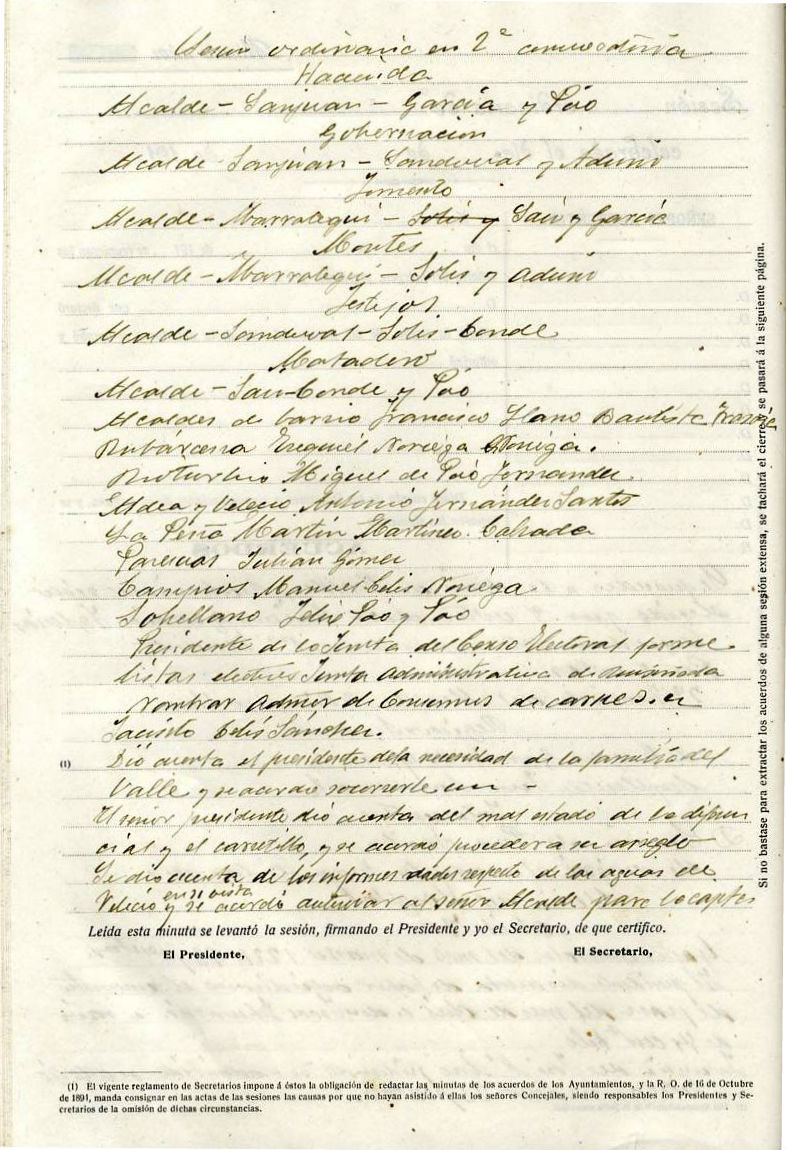 Sesión ordinaria en 2ª convocatoria
Hacienda
Alcalde - Sanjuan - García y Póo
Gobernación
Alcalde Sanjuan - Sandoval y Aduno
Fomento
Alcalde - Ibarralegui - Solis y Saiz y García
Montes
Alcalde - Ibarralegui - Solis y Aduno
Festejos
Alcalde - Sandoval - Solis - Conde
Matadero
Alcalde - Sanz - Conde y Póo
Alcaldes de barrio Francisco Llano Bautista
Bubárcena Ezequiel Noriega Noriega.
Miguel de Póo Fernandez
Aldea y Velecio Antonio Fernández Santos
La Peña Martín Martinez Calzada
Julián Gómez
Campios Manuel Celis Noriega
Sobellano Felix Póo y Póo
Presidente de la Junta del Censo Electoral forme
listas electores Junta administrativa de
Nombrar Admor de Consumos de carnes. a
Jacinto Celis Sánchez.
(1) Dió cuenta el presidente de la necesidad de la familia del
Valle y se acordó socorrerle con -
El señor presidente dió cuenta del mal estado de la
y el carretillo, y se acordó proceder a su arreglo
Se dio cuenta de los informes dados respecto de las aguas de
Velecio y en su vista se acordó autorizar al señor Alcalde para
Leida esta minuta se levantó la sesión, firmando el Presidente y yo el Secretario, de que certifico.
El Presidente,
El Secretario,
(1) El vigente reglamento de Secretarios impone á éstos la obligación de redactar las minutas de los acuerdos de los Ayuntamientos, y la R. O. de 16 de Octubre
de 1891, manda consignar en las actas de las sesiones las causas por que no hayan asistido á ellas los señores Concejales, siendo responsables los Presidentes y Se-
cretarios de la omisión de dichas circunstancias.
Si no bastase para extractar los acuerdos de alguna sesión extensa, se tachará el cierre y se pasará á la siguiente página.